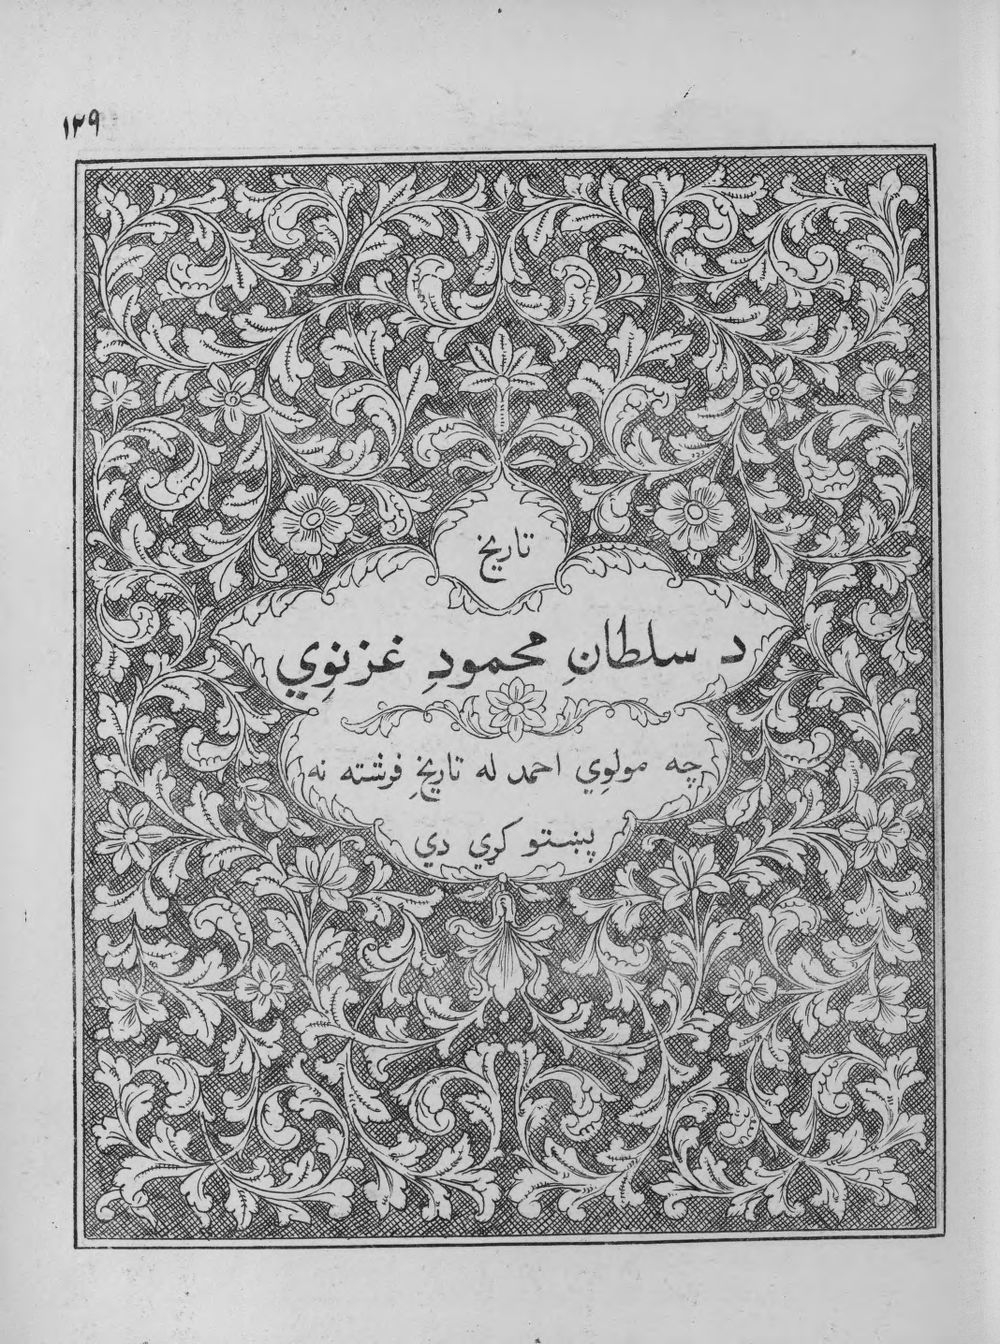 ۱۲۹
تاریخ
د سلطانِ محمودِ غزنوِي
چه مولوِي احمد له تاریخِ فرشته نه
پښتو کړِي دي